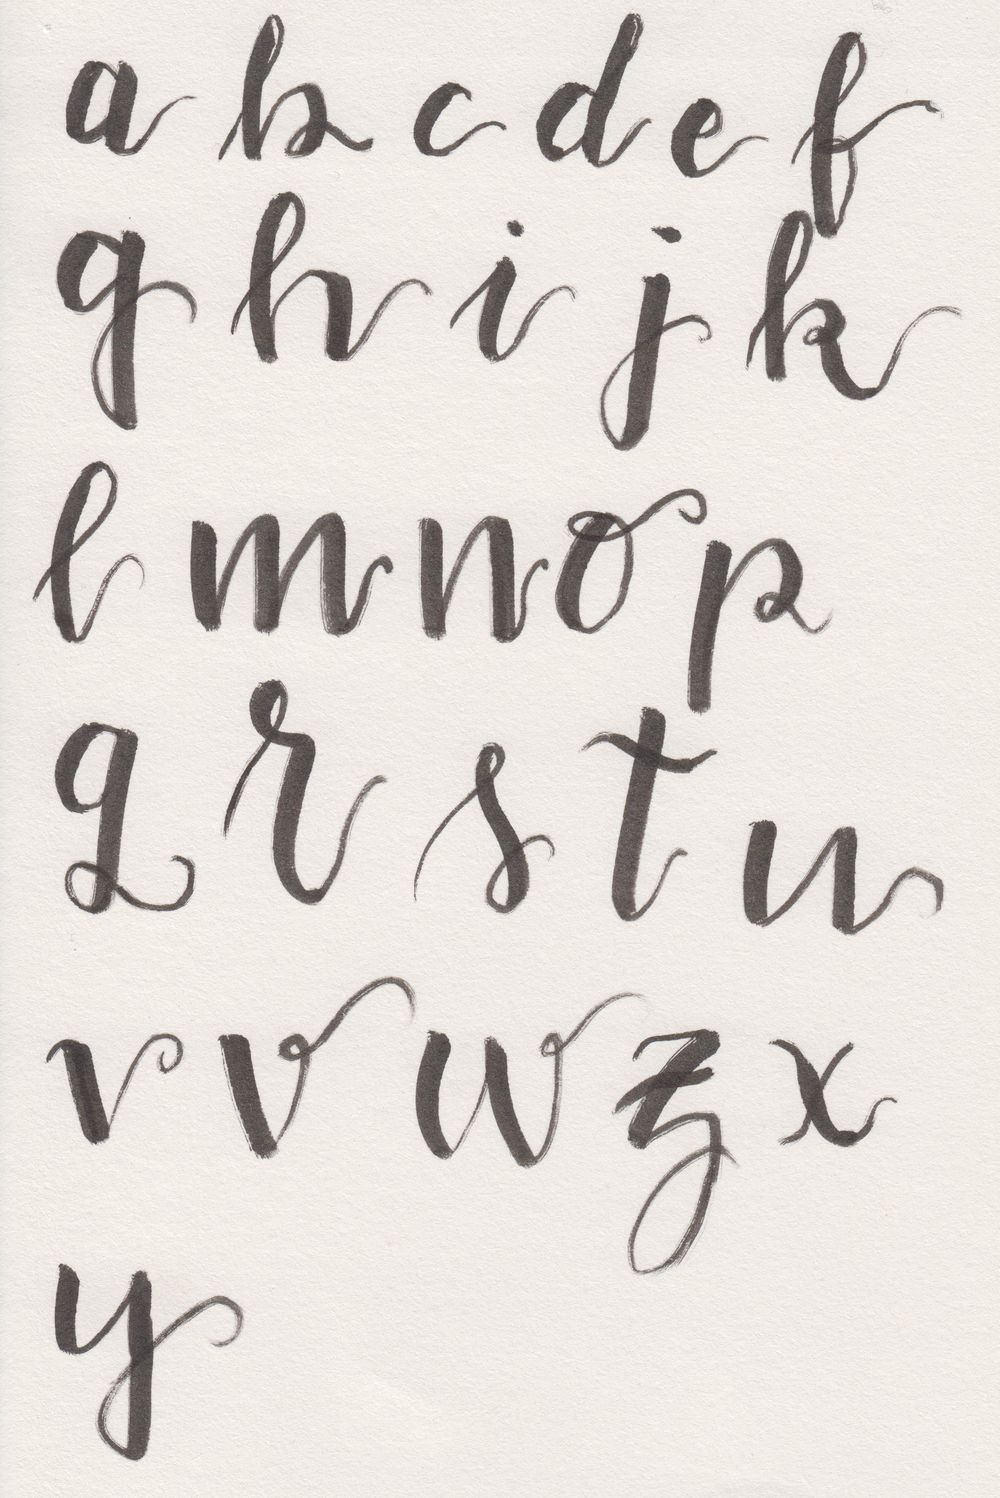 a b c d e f
g h i j k
l m n o p
q r s t u
v v w z x
y